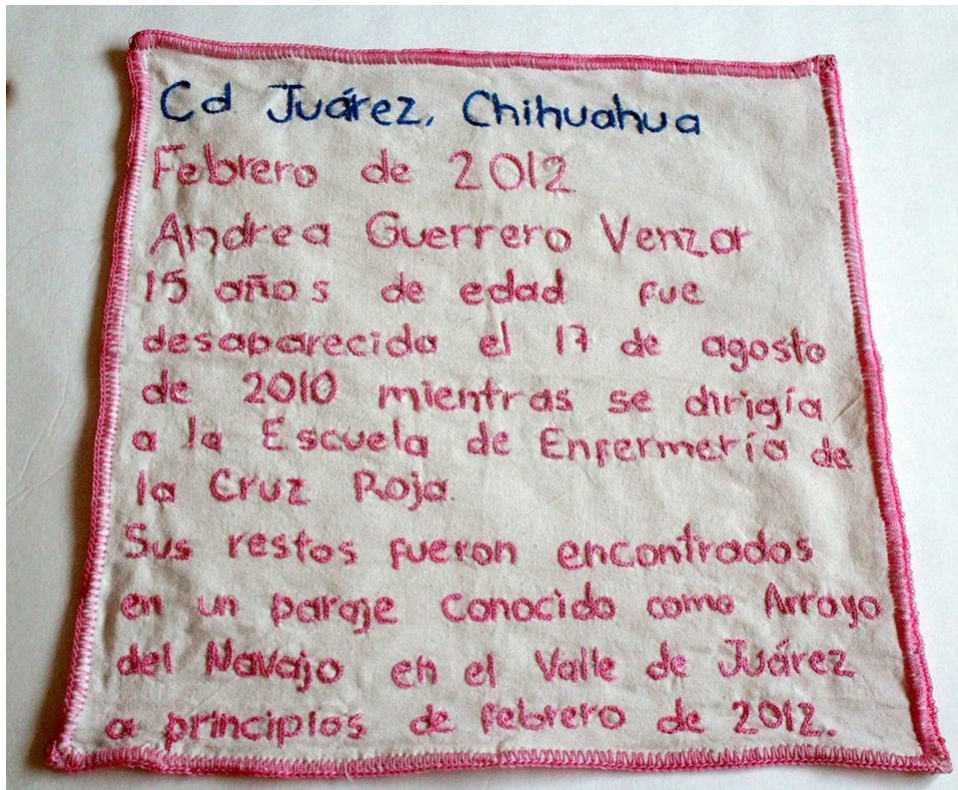 Cd Juárez, Chihuahua
Febrero de 2012
Andrea Guerrero Venzor
15 años de edad fue
desaparecida el 17 de agosto
de 2010 mientras se dirigía
a la Escuela de Enfermería de
la Cruz Roja.
Sus restos fueron encontrados
en un paraje conocido como Arroyo
del Navajo en el Valle de Juárez
a principios de febrero de 2012.